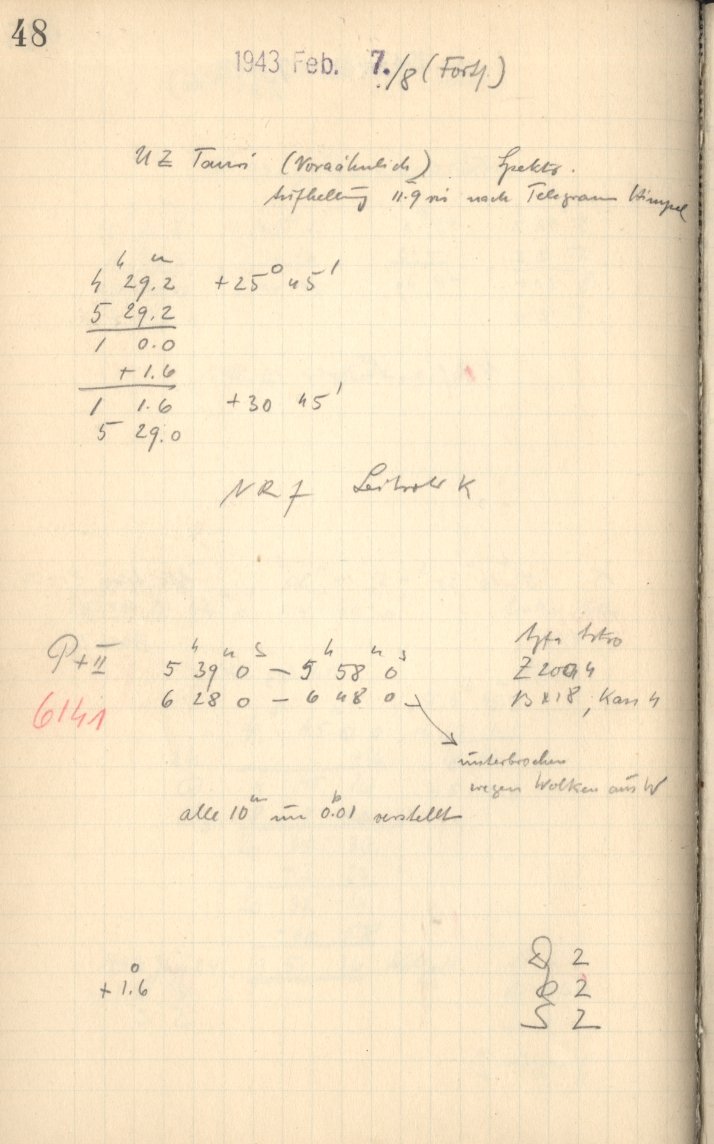 48
1943 Feb. 7./8 (Forts.)
UZ Tauri (Novaähnlich) Spektr.
Aufhellung 11.9 vis nach Telegramm Himpel
h m
4 29.2 +25° 45'
5 29.2
1 0.0
+ 1.6
1 1.6 +30 45'
5 29.0
NR 7 K
P+II
h m s h m s
5 39 0 — 5 58 0 Agfa Astro
6 28 0 — 6 48 0 Kass 4
6141
unterbrochen
wegen Wolken aus W
alle 10m um 0.01 verstellt
+ 1.6°
2
2
S 2